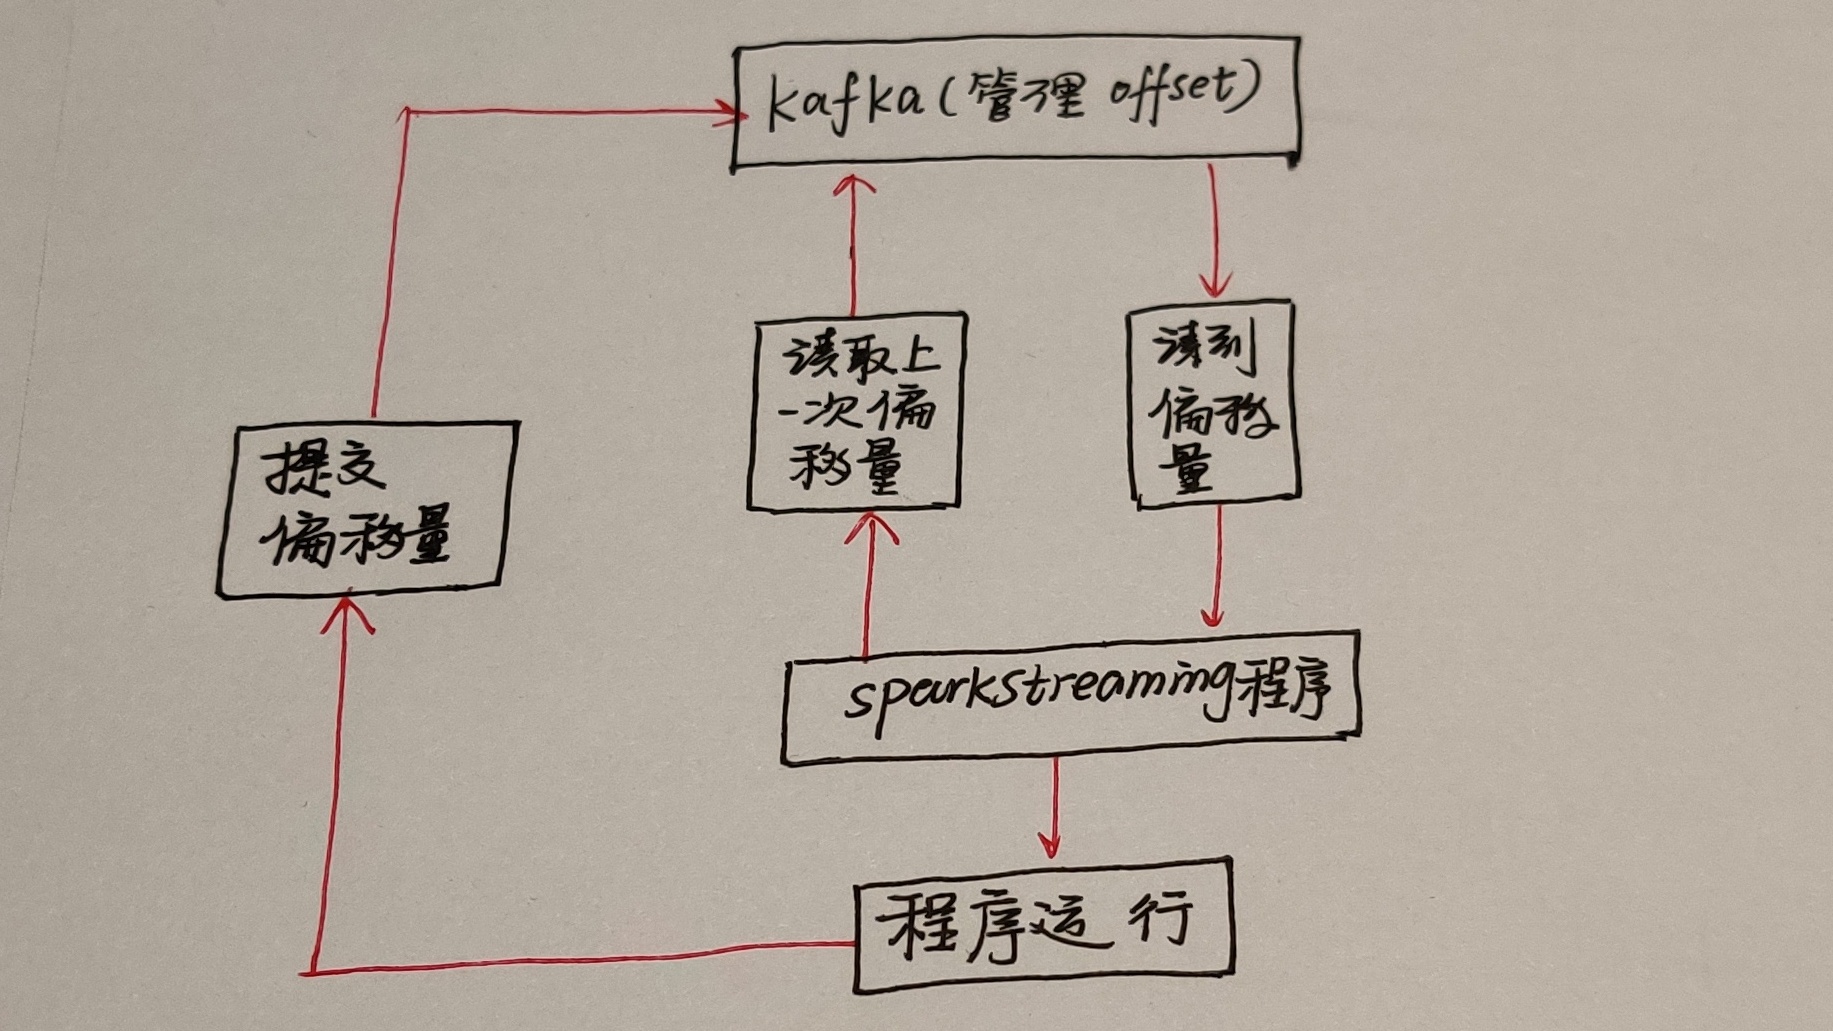 kafka(管理 offset)
读取上
一次偏
移量
读到
偏移
量
提交
偏移量
sparkstreaming程序
程序运行